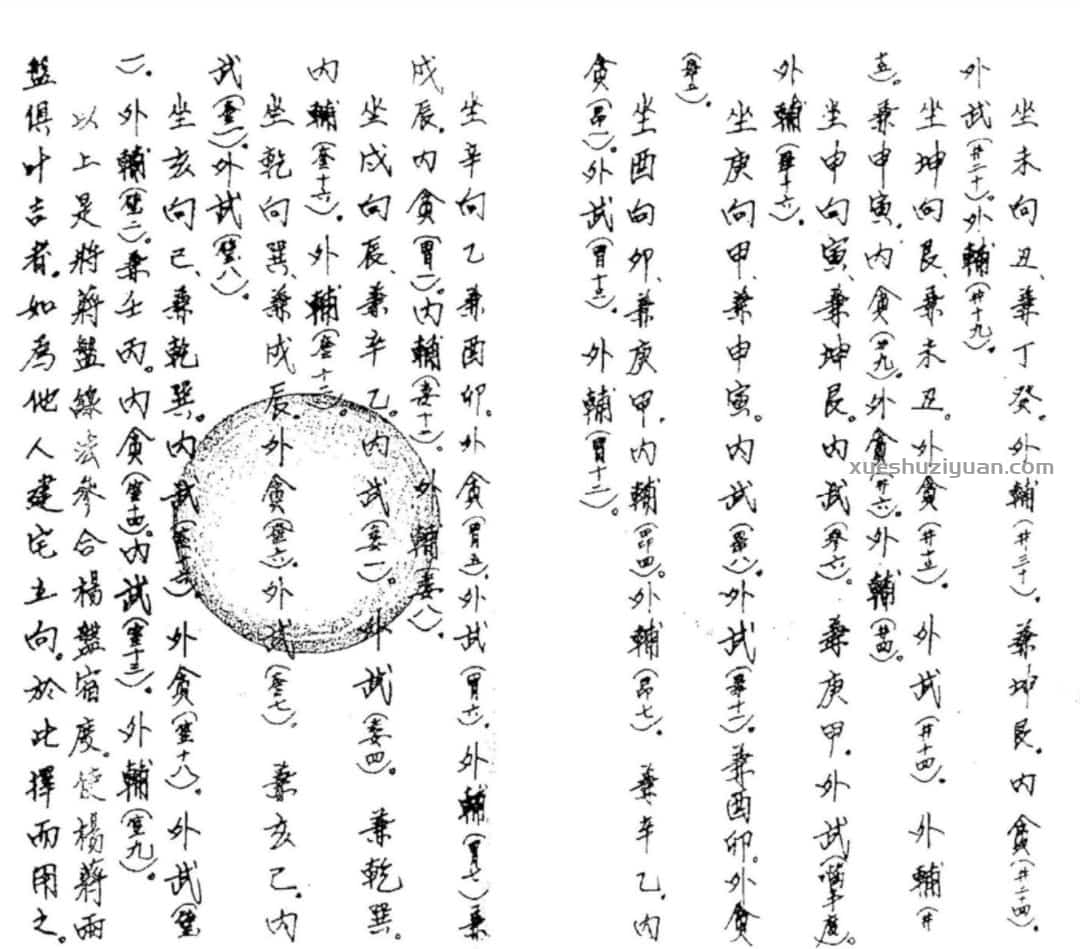 坐未向丑、兼丁癸。外輔(井三十)。兼坤艮。内貪(井二十四)。
外武(井二十)。外輔(井十九)。
坐坤向艮、兼未丑。外貪(井十五)。外武(井十四)。外輔(井
五)。兼申寅。内貪(井九)。外貪(井六)。外輔(井四)。
坐申向寅、兼坤艮。内武(参六)。兼庚甲。外武(觜半度)。
外輔(畢十六)。
坐庚向甲、兼申寅。内武(畢八)。外武(畢十二)。兼酉卯。外貪
(畢五)。
坐酉向卯、兼庚甲。内輔(昴四)。外輔(昴七)。兼辛乙。内
貪(昴一)。外武(胃十三)。外輔(胃十二)。
坐辛向乙兼酉卯。外貪(胃五)、外武(胃六)。外輔(胃七)兼
戌辰。内貪(胃一)。内輔(婁十一)。外輔(婁八)。
坐戌向辰、兼辛乙。内武(婁一)。外武(婁四)。兼乾巽。
内輔(奎十六)。外輔(奎十二)。
坐乾向巽、兼戌辰。外貪(奎六)。外武(奎七)。兼亥己。内
武(奎一)。外武(壁八)。
坐亥向己、兼乾巽。内武(室十六)。外貪(室十八)。外武(壁
一。外輔(壁二)。兼壬丙。内貪(室十四)。内武(室十三)。外輔(室九)。
以上是將蔣盤線法參合楊盤宿度。使楊蔣兩
盤俱叶吉者。如為他人建宅立向。於此擇而用之。
xueshuziyuan.com